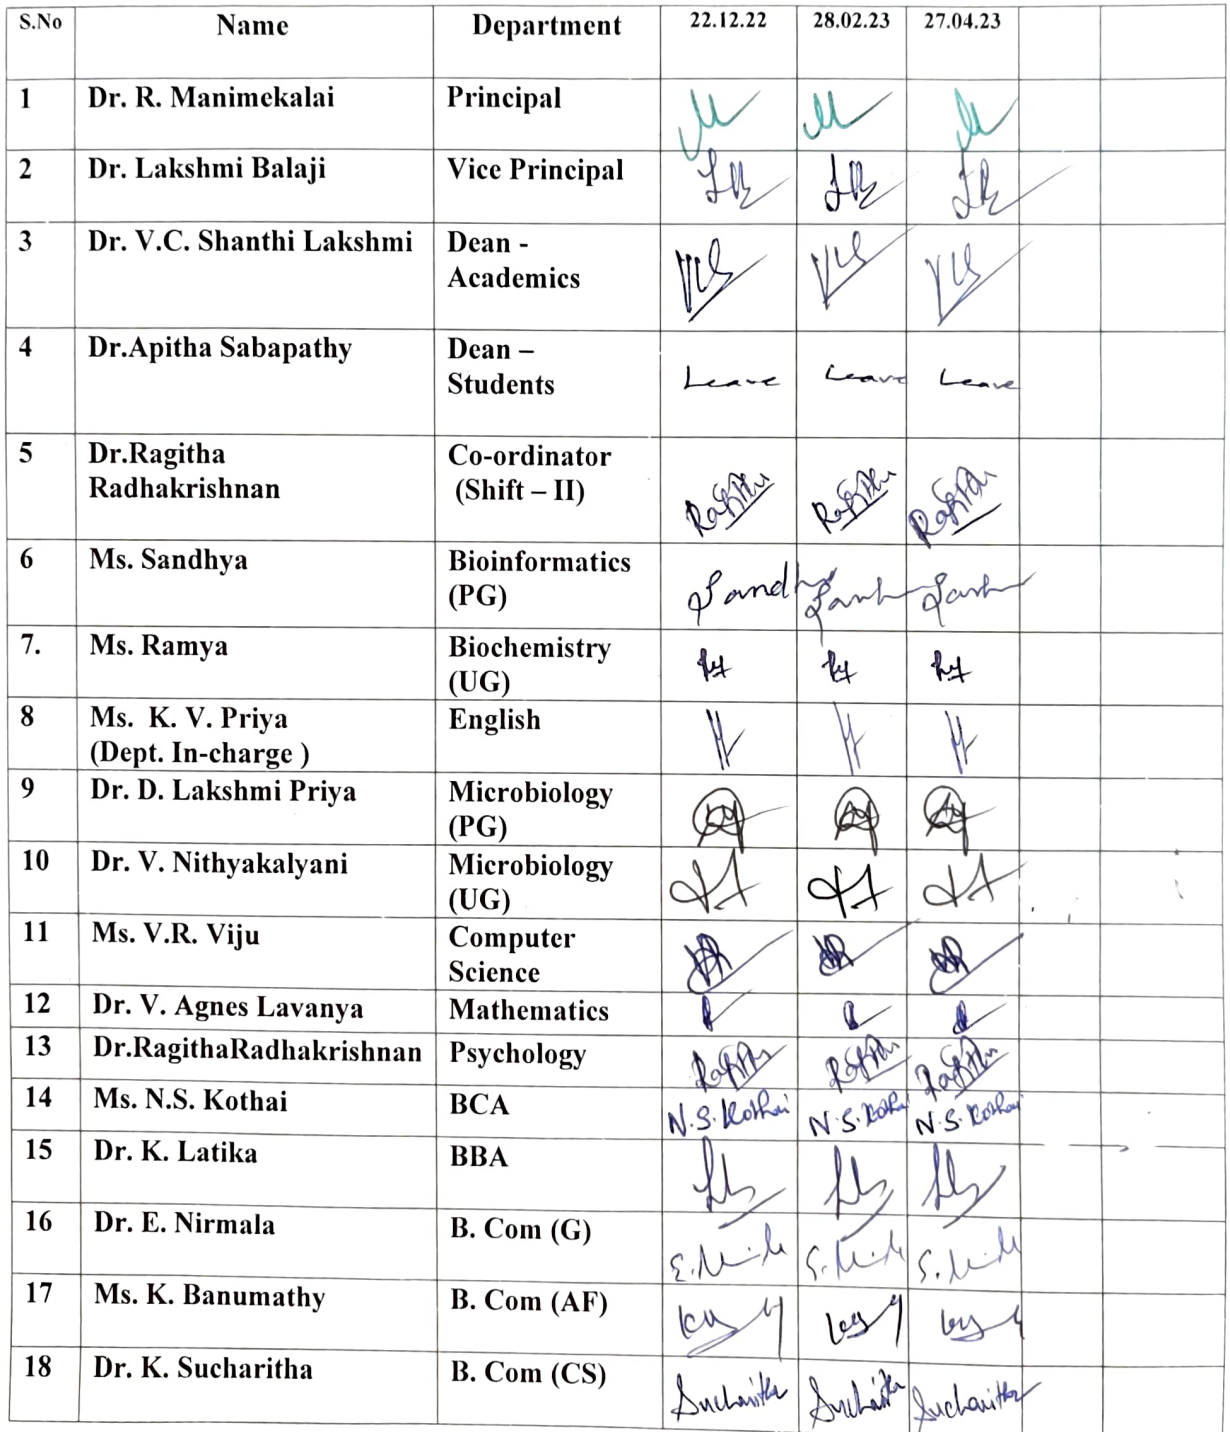 S.No Name Department 22.12.22 28.02.23 27.04.23
1 Dr. R. Manimekalai Principal
2 Dr. Lakshmi Balaji Vice Principal
3 Dr. V.C. Shanthi Lakshmi Dean -
Academics
4 Dr.Apitha Sabapathy Dean –
Students
Leave Leave Leave
5 Dr.Ragitha Co-ordinator
Radhakrishnan (Shift – II)
6 Ms. Sandhya Bioinformatics
(PG)
7. Ms. Ramya Biochemistry
(UG)
8 Ms. K. V. Priya English
(Dept. In-charge )
9 Dr. D. Lakshmi Priya Microbiology
(PG)
10 Dr. V. Nithyakalyani Microbiology
(UG)
11 Ms. V.R. Viju Computer
Science
12 Dr. V. Agnes Lavanya Mathematics
13 Dr.RagithaRadhakrishnan Psychology
14 Ms. N.S. Kothai BCA N.S. Kothai N.S. Kothai N.S. Kothai
15 Dr. K. Latika BBA
16 Dr. E. Nirmala B. Com (G)
17 Ms. K. Banumathy B. Com (AF)
18 Dr. K. Sucharitha B. Com (CS) Sucharitha Sucharitha Sucharitha